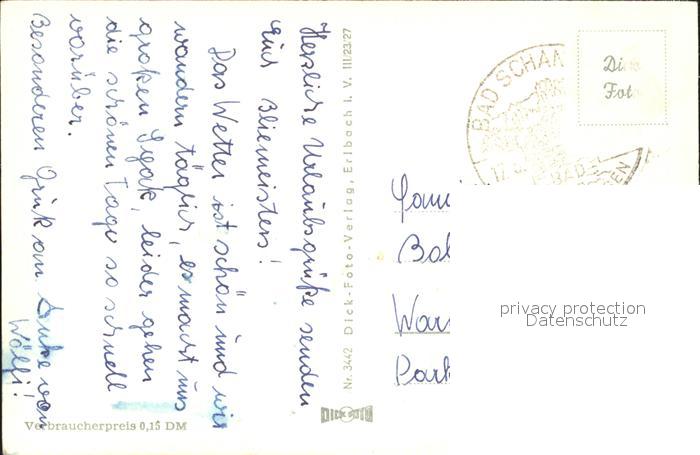 Herzliche Urlaubsgrüße senden
Euch Bliemeisters!
Das Wetter ist schön und wir
wandern täglich, es macht uns
großen Spaß, leider gehen
die schönen Tage so schnell
vorüber.
Besonderen Gruß an Anke von
Wölfi!
Verbraucherpreis 0,15 DM
Nr. 3442 Dick-Foto-Verlag, Erlbach i. V. III/23/27
DICK FOTO
BAD SCHAN
17.
BAD
Dick
Foto
Fami
Bol
War
Park
privacy protection
Datenschutz